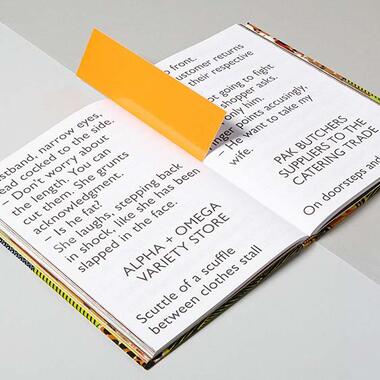 istband, narrow eyes,
ead cocked to the side.
– Don't worry about
the length. You can
cut them. She grunts
acknowledgment.
– Is he fat?
She laughs, stepping back
in shock, like she has been
slapped in the face.
ALPHA + OMEGA
VARIETY STORE
Scuttle of a scuffle
between clothes stall
o front.
ustomer returns
their respective
ot going to fight
shopper asks.
only him.
nger points accusingly,
– He want to take my
wife.
PAK BUTCHERS
SUPPLIERS TO THE
CATERING TRADE
On doorsteps and